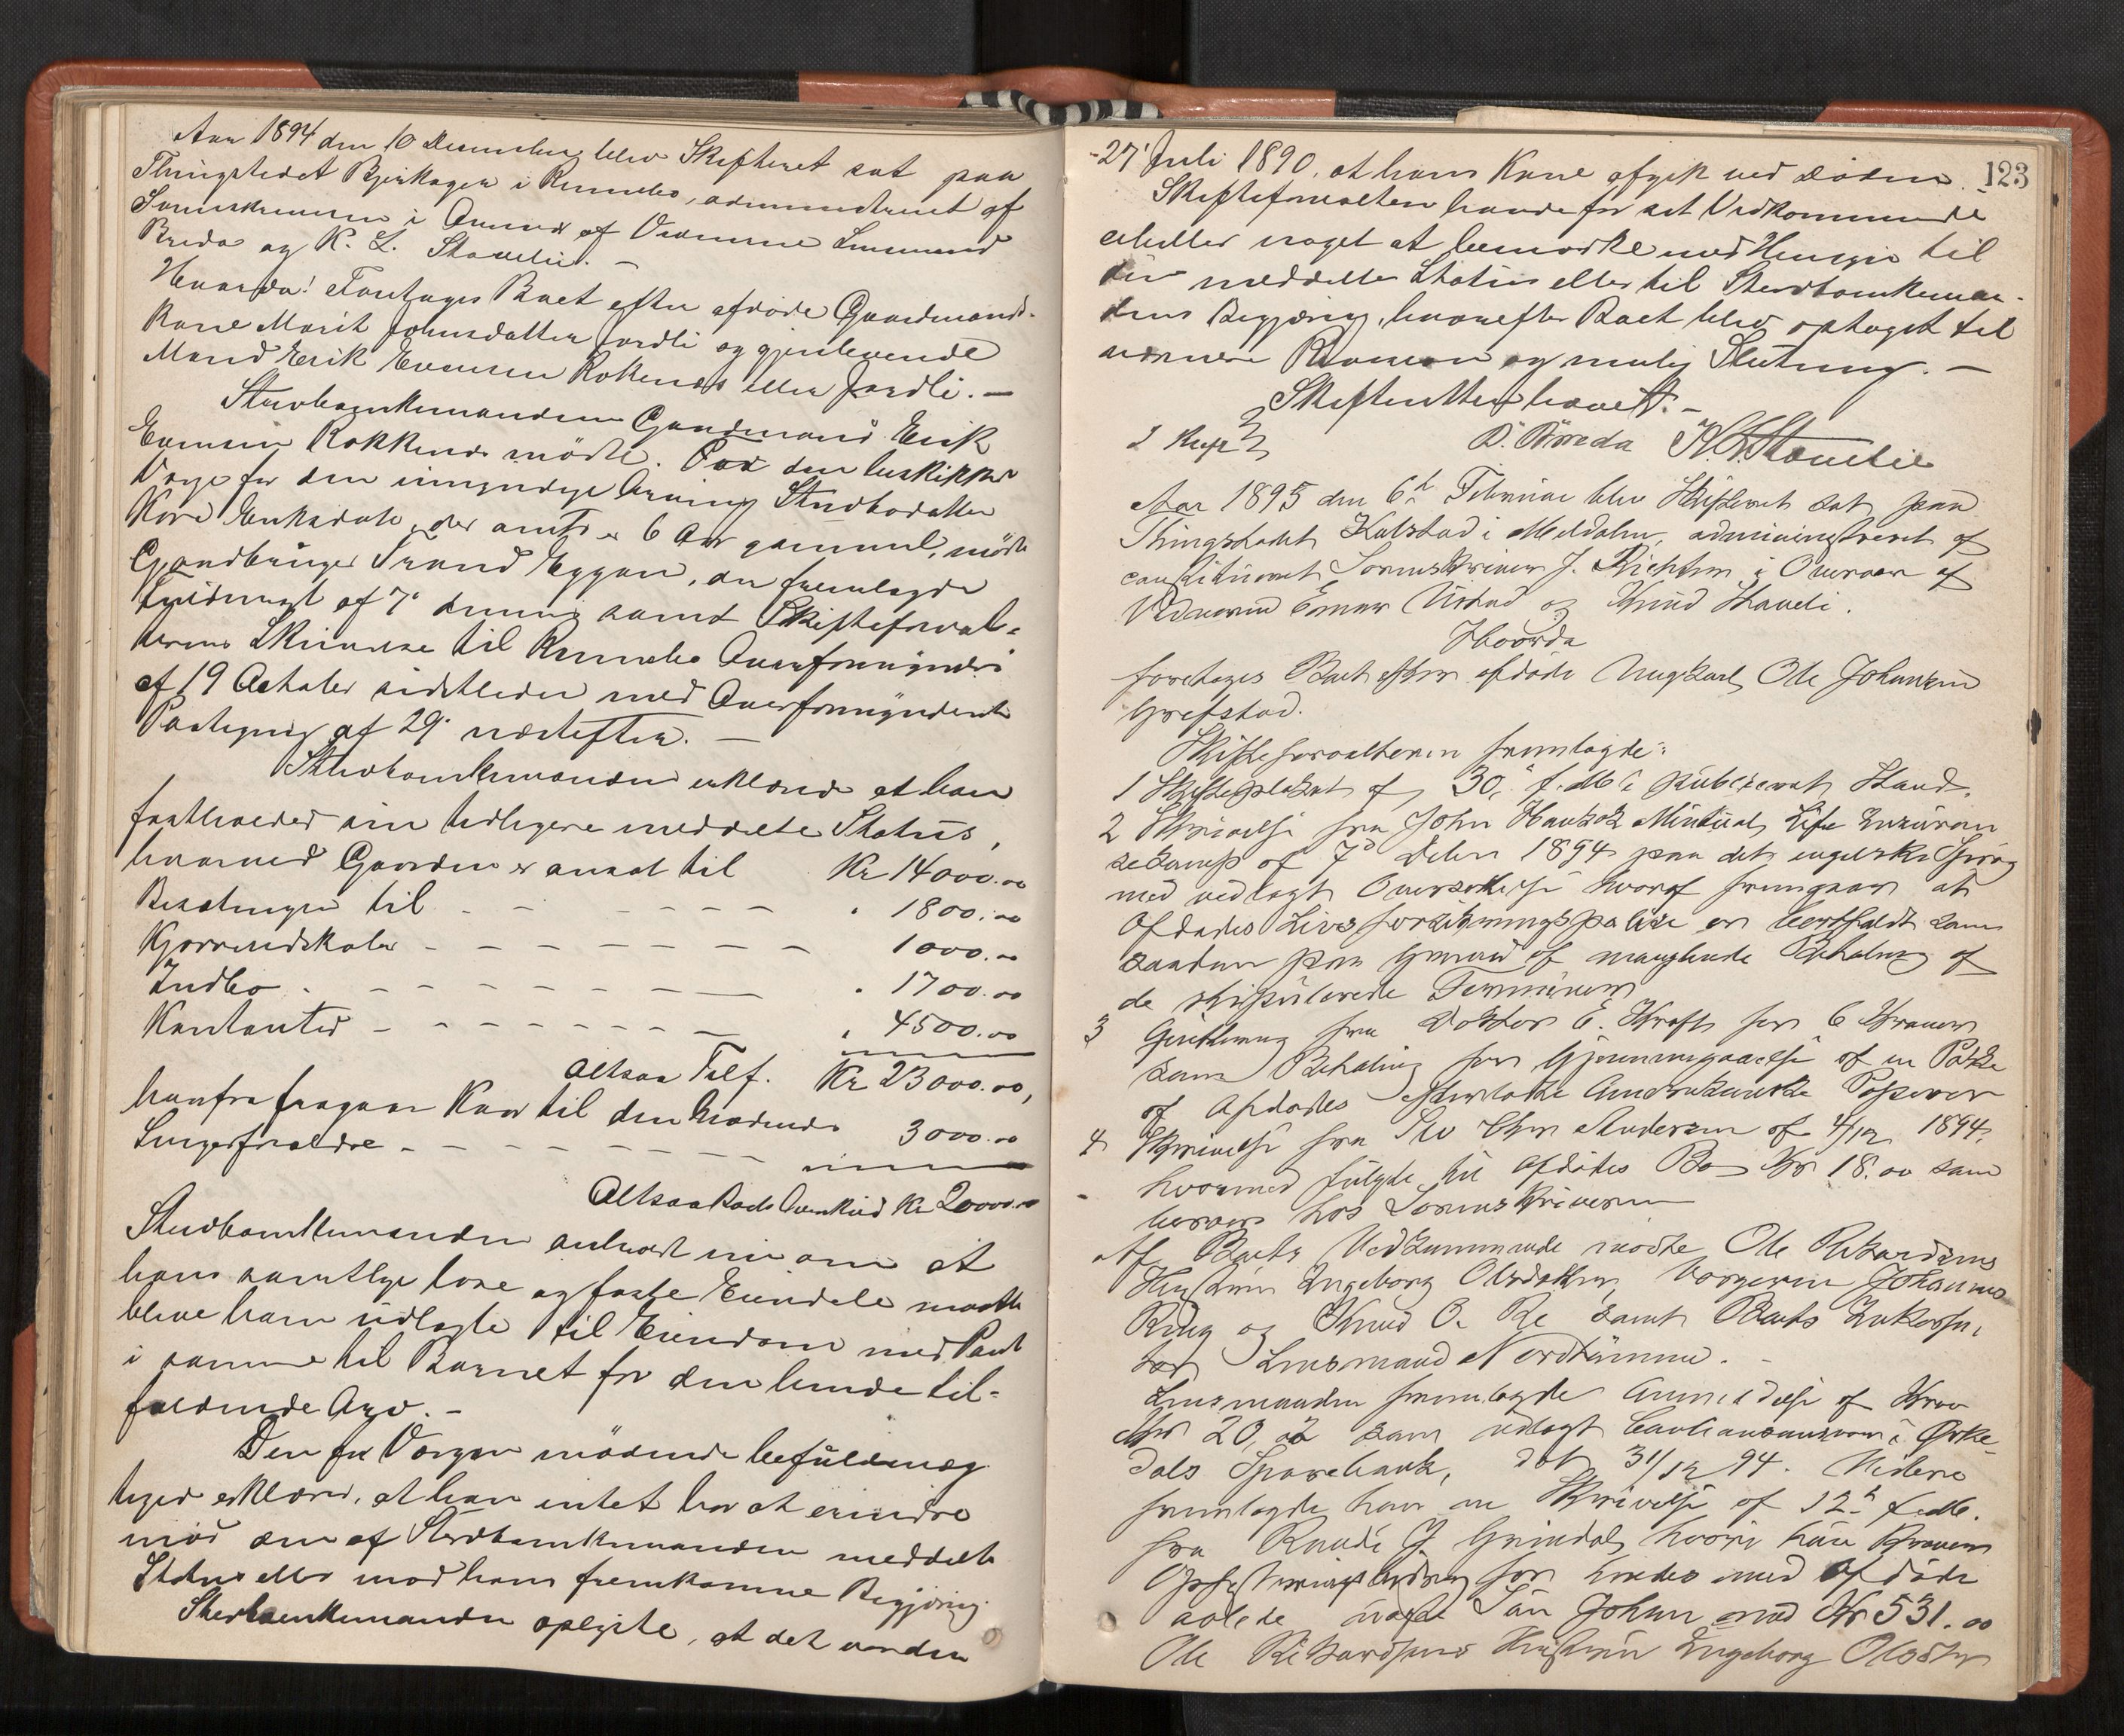 Aar 1894 den 10 December blev Skifteret sat paa
Thingstedet Bjerkager i Rennebo, administreret af
Sorenskriveren i Overvær af Vidnerne Lensmand
Breda og K. L. Stavelie. –
Hvorda! Foretages Boet efter afdøde Gaardmands-
kone Marit Joensdatter Jordli og gjenlevende
Mand Erik Evensen Rokkenes eller Jordli. –
Stervboenkemanden Gaardmand Erik
Evensen Rokkenes mødte. For den beskikkede
Værge for den umyndige Arving Stervbodatter
Kari Eriksdatter, der antes 6 Aar gammel, mødte
Gaardbruger Trond Eggan, der fremlagde
Fuldmagt af 7de dennes samt Skifteforval-
terens Skrivelse til Rennebo Overformynderi
af 19 October sidstleden med Overformynderiets
Paategning af 29de næstefter. –
Stervboenkemanden erklærede at han
fastholder sin tidligere meddelte Status,
hvorved Gaarden er ansat til Kr 14000.00
Besætningen til - - - - - " 1800.00
Kjøreredskaber - - - - - - 1000.00
Indbo - - - - - - - " 1700.00
Kontanter - - - - - - " 4500.00
Altsaa Tilf. Kr 23000.00,
hvorfra fragaar Kaar til den Afdødes
Svigerforældre - - - - - - 3000.00
Altsaa Boets Overskud Kr 20000.00
Stervboenkemanden androg nu om at
hans samtlige løse og faste Eiendele maatte
blive ham udlagte til Eiendom med Pant
i samme til Barnet for den hende til-
faldende Arv. –
Den for Værgen mødende befuldmæg-
tiged erklærer, at han intet har at erindre
mod den af Stervboenkemanden meddelte
Status eller mod hans fremkomne Begjæring.
Stervboenkemanden oplyste, at det var den
123
27' Juli 1890, at hans Kone afgik ved Døden.
Skifteforvalteren havde for sit Vedkommende
heller noget at bemærke med Hensyn til
den meddelte Status eller til Stervboenkeman-
dens Begjæring, hvorefter Boet blev optaget til
nærmere Revision og mulig Slutning. –
Skifteretten hævet. –
D. Breda K. L. Stavelie
Aar 1895 den 6te Februar blev Skifteret sat paa
Thingstedet Kalstad i Meldalen, administreret af
constitueret Sorenskriver J. Richter i Overvær af
Vidnerne Einar Ustad og Knud Haveli.
Hvorda
foretages Boet efter afdøde Ungkarl Ole Johansen
Grefstad.
Skifteforvalteren fremlagde:
1 Skifteplakat af 30. f. M. i publiceret Stand.
2 Skrivelse fra John Hankok Mintual Life Insuran
sekomp af 7de Debr 1894 paa det engelske Sprog
med vedlagt Oversættelse hvoraf fremgaar at
Afdødes Livsforsikringspolice er bortfaldt som
saadan paa Grund af manglende Betaling af
de stipulerede Terminer
3 Qvittering fra Doktor E. Kraft for 6 Kroner
som Betaling for Gjennemgaaelse af en Pakke
af Afdødes efterladte Amerikanske Papirer
4 Skrivelse fra Siv Chr Andersen af 4/12 1894.
hvormed fulgte til Afdødes Bo Kr 18.00 som
beroer hos Sorenskriveren
Af Boets Vedkommende mødte Ole Rikardsens
Hustru Ingeborg Olsdatter, Værgerne Johannes
Ring og Knud O. Re samt Boets Inkassa-
tor Lensmand Nordtømme. –
Lensmanden fremlagde Anmeldelse af Krav
Kr 20,00 som udlagt i Orke-
dals Sparebank, dat 31/12 94. Videre
fremlagde han en Skrivelse af 12te f. M.
fra Randi J. Grindal hvori hun kræver
Opfostringsbidrag for hendes med Afdøde
avlede uægte Søn Johan med Kr 531.00
Ole Rikardsens Hustru Ingeborg Olsdtr